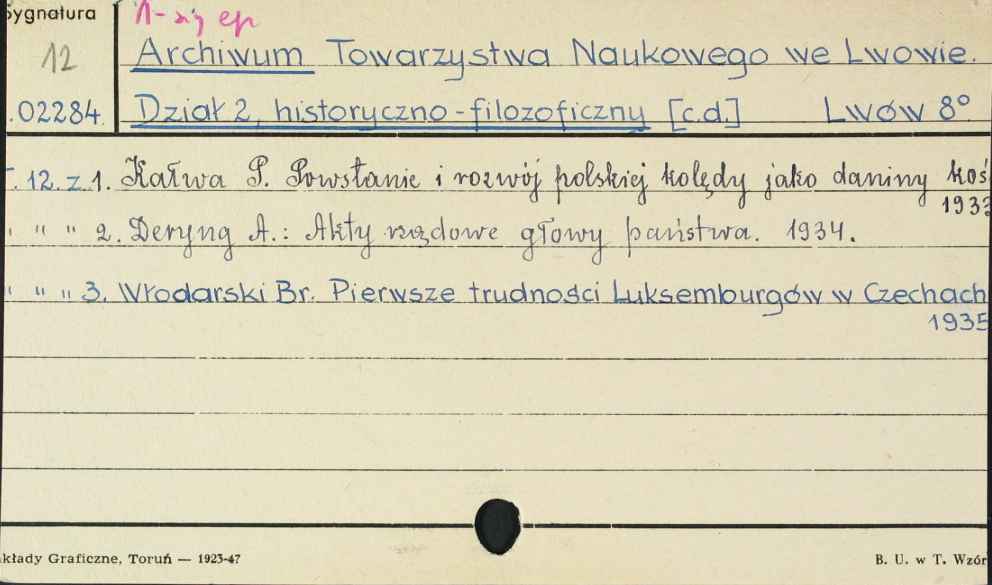 Sygnatura
12
02284.
Archiwum Towarzystwa Naukowego we Lwowie.
Dział 2, historyczno-filozoficzny [c.d.] Lwów 8°
T. 12. z. 1. Kałwa P. Powstanie i rozwój polskiej kolędy jako daniny koś
1933
" " " 2. Deryng A.: Akty rządowe głowy państwa. 1934.
" " " 3. Włodarski Br. Pierwsze trudności Luksemburgów w Czechach
1935
kłady Graficzne, Toruń — 1923-47
B. U. w T. Wzór